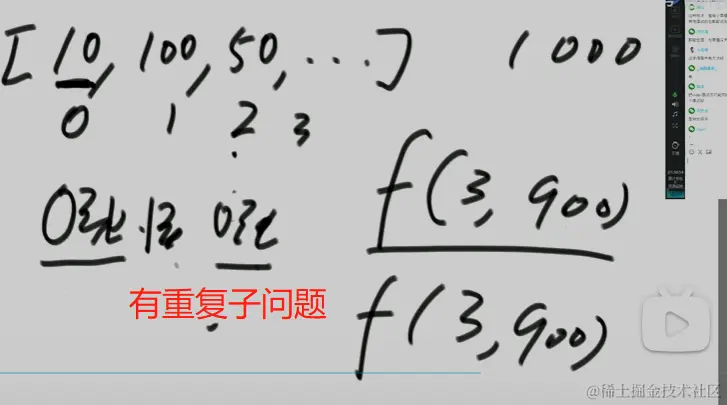 [10, 100, 50, ...] 1000
0 1 2 3
0张 1张 0张
f(3, 900)
有重复子问题
f(3, 900)
@稀土掘金技术社区